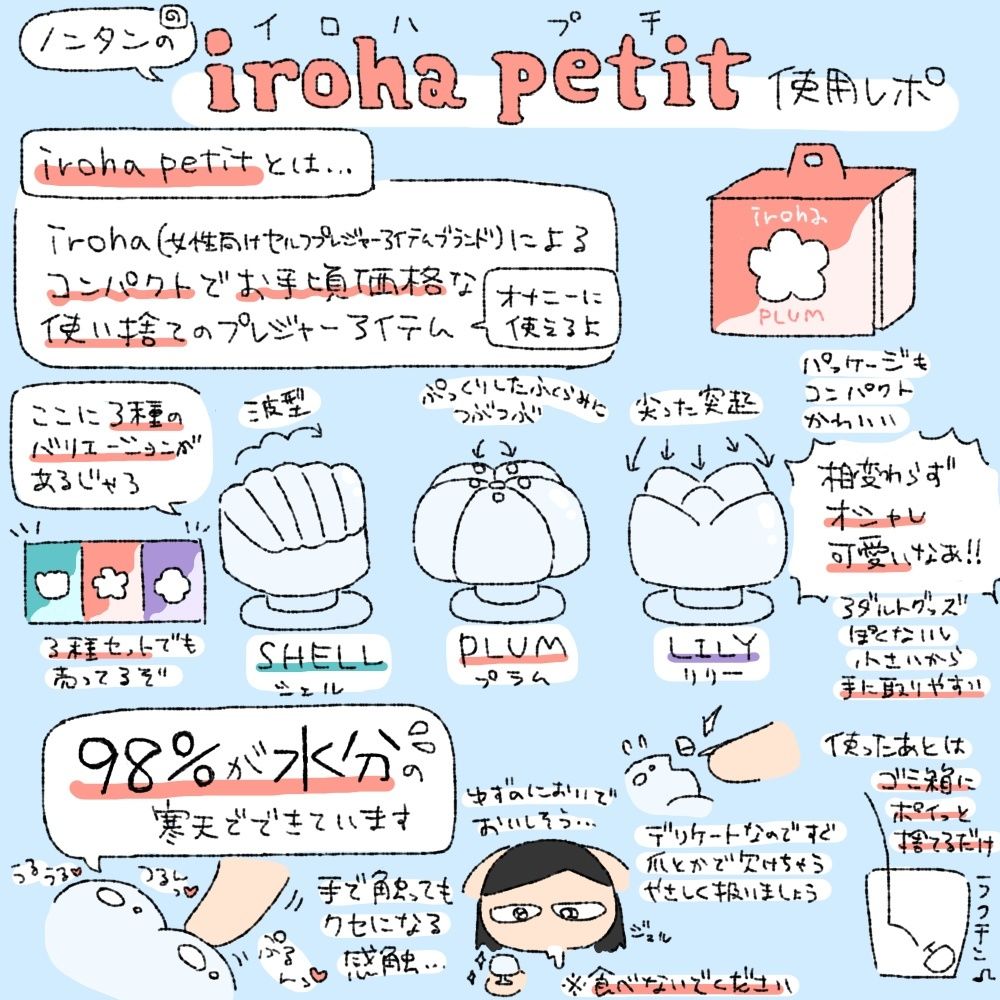 ノンタンの
イロハ プチ
iroha petit 使用レポ
iroha petitとは...
iroha(女性向けセルフプレジャーアイテムブランド)による
コンパクトでお手頃価格な
使い捨てのプレジャーアイテム
オナニーに
使えるよ
iroha
PLUM
パッケージも
コンパクト
かわいい
ここに3種の
バリエーションが
あるじゃろ
3種セットでも
売ってるぞ
波型
SHELL
シェル
ぷっくりしたふくらみに
つぶつぶ
PLUM
プラム
尖った突起
LILY
リリー
相変わらず
オシャレ
可愛いなあ!!
アダルトグッズ
ぽくないし
小さいから
手に取りやすい
98%が水分の
寒天でできています
うるうる♥
つるんっ♥
ぷるんっ♥
手で触っても
クセになる
感触...
ゆずのにおいで
おいしそう...
ジュル
※食べないでください
デリケートなのですぐ
爪とかで欠けちゃう
やさしく扱いましょう
使ったあとは
ゴミ箱に
ポイっと
捨てるだけ
ラクチン♫